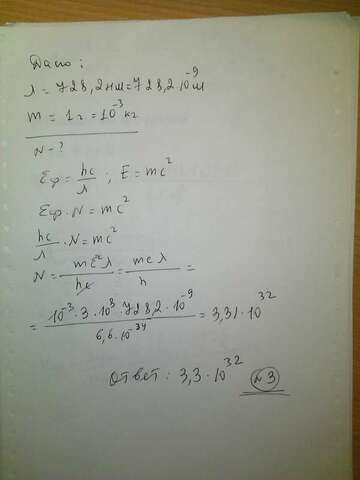 Дано:
λ = 728,2 нм = 728,2·10⁻⁹ м
m = 1 г = 10⁻³ кг
N - ?
Eφ = hc/λ ; E = mc²
Eφ · N = mc²
hc/λ · N = mc²
N = mc²λ/hc = mcλ/h =
= 10⁻³ · 3 · 10⁸ · 728,2 · 10⁻⁹ / 6,6 · 10⁻³⁴ = 3,31 · 10³²
Ответ: 3,3 · 10³² №3